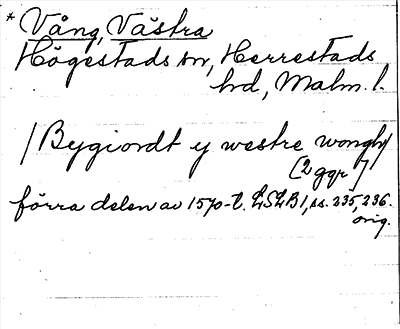 * Vång, Västra
Högestads sn, Herrestads
hd, Malm. l.
/Bygiordt y westre wongh/
[2 ggr]
förra delen av 1570-t. LSLB 1, ss. 235, 236.
orig.